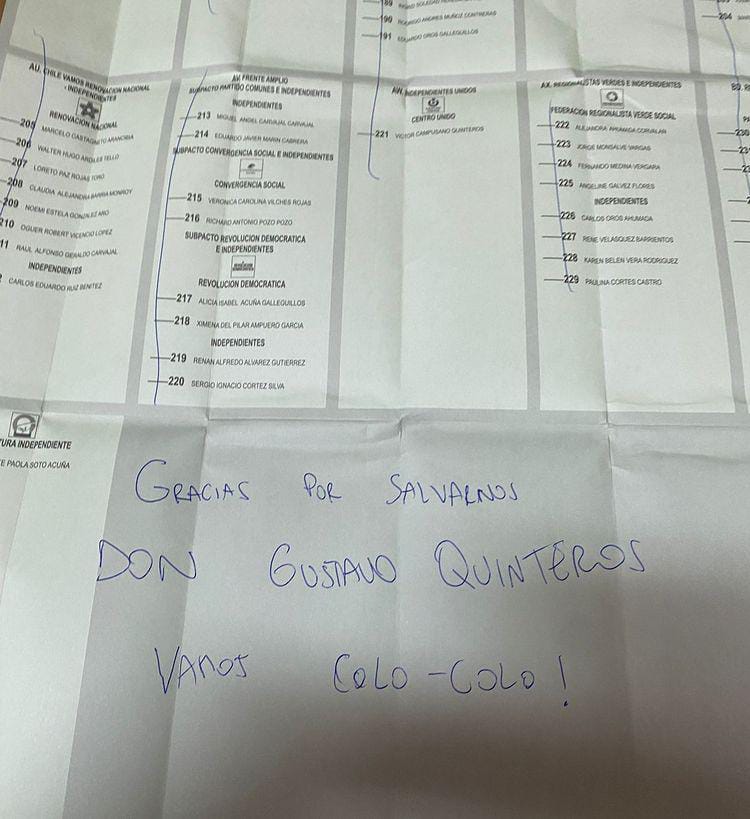 189
190 RODRIGO ANDRES MUÑOZ CONTRERAS
191 EDUARDO OROS GALLEGUILLOS
204
AU. CHILE VAMOS RENOVACION NACIONAL
- INDEPENDIENTES
RENOVACION NACIONAL
205 MARCELO CASTAGNETO ARANCIBIA
206 WALTER HUGO ARDILES TELLO
207 LORETO PAZ ROJAS TORO
208 CLAUDIA ALEJANDRA BARRA MONROY
209 NOEMI ESTELA GONZALEZ ARO
210 OGUER ROBERT VICENCIO LOPEZ
11 RAUL ALFONSO GERALDO CARVAJAL
INDEPENDIENTES
CARLOS EDUARDO RUIZ BENITEZ
AV. FRENTE AMPLIO
SUBPACTO PARTIDO COMUNES E INDEPENDIENTES
INDEPENDIENTES
213 MIGUEL ANGEL CARVAJAL CARVAJAL
214 EDUARDO JAVIER MARIN CABRERA
SUBPACTO CONVERGENCIA SOCIAL E INDEPENDIENTES
CONVERGENCIA SOCIAL
215 VERONICA CAROLINA VILCHES ROJAS
216 RICHARD ANTONIO POZO POZO
SUBPACTO REVOLUCION DEMOCRATICA
E INDEPENDIENTES
REVOLUCION DEMOCRATICA
217 ALICIA ISABEL ACUÑA GALLEGUILLOS
218 XIMENA DEL PILAR AMPUERO GARCIA
INDEPENDIENTES
219 RENAN ALFREDO ALVAREZ GUTIERREZ
220 SERGIO IGNACIO CORTEZ SILVA
AW. INDEPENDIENTES UNIDOS
CENTRO UNIDO
221 VICTOR CAMPUSANO QUINTEROS
AX. REGIONALISTAS VERDES E INDEPENDIENTES
FEDERACION REGIONALISTA VERDE SOCIAL
222 ALEJANDRA AHUMADA CORVALAN
223 JORGE MONSALVE VARGAS
224 FERNANDO MEDINA VERGARA
225 ANGELINE GALVEZ FLORES
INDEPENDIENTES
226 CARLOS OROS AHUMADA
227 RENE VELASQUEZ BARRIENTOS
228 KAREN BELEN VERA RODRIGUEZ
229 PAULINA CORTES CASTRO
230
TURA INDEPENDIENTE
E PAOLA SOTO ACUÑA
GRACIAS POR SALVARNOS
DON GUSTAVO QUINTEROS
VAMOS COLO-COLO!